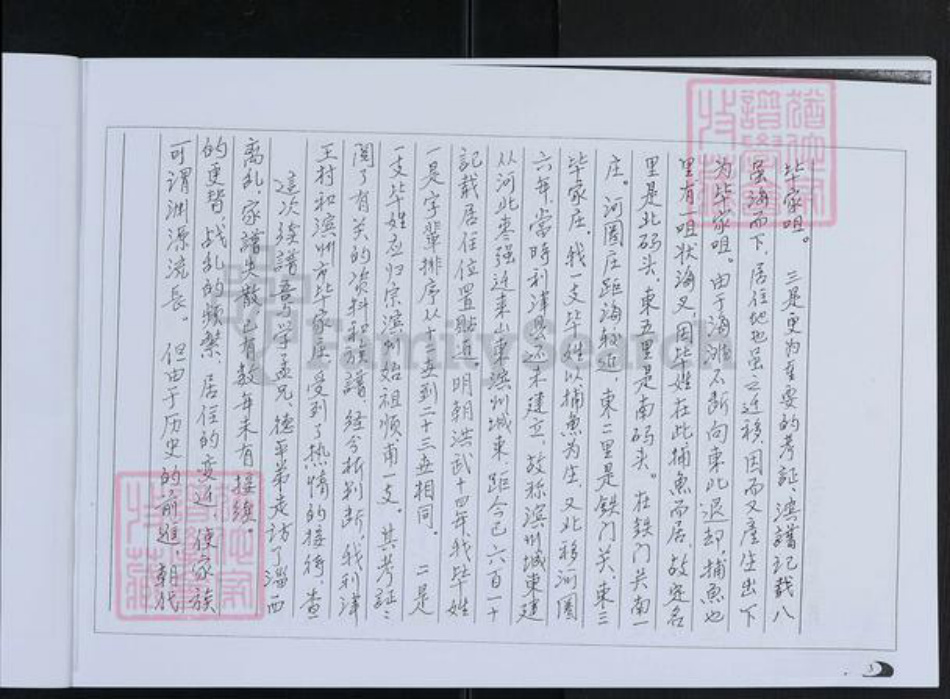 可谓渊源流长。 但由于历史的前进,朝代
的更替,战乱的频繁,居住的变迁,使家族
离乱,家譜失散已有数年未有接续。
这次续譜吾与学孟兄,德平弟走访了淄西
王村和滨州市毕家庄,受到了热情的接待,查
阅了有关的资料和族譜,经分析判断,我利津
一支毕姓应归宗滨州始祖顺甫一支。其考証:
一是字輩排序从十二世到二十三世相同。 二是
記载居住位置貼近。明朝洪武十四年,我毕姓
从河北枣强迁来山東滨州城東,距今已六百一十
六年,當時利津县还未建立,故称滨州城東建
毕家庄。我一支毕姓以捕魚为生,又北移河圈
庄。河圈庄距海較近,東二里是鉄门关,東三
里是北码头,東五里是南码头。在鉄门关南一
里有一咀状海叉,因毕姓在此捕魚而居,故定名
为毕家咀。由于海滩不断向東北退却,捕魚也
虽海而下,居住地也虽之迁移,因而又产生出下
毕家咀。 三是更为重要的考証,滨譜记载八
FamilySearch
3